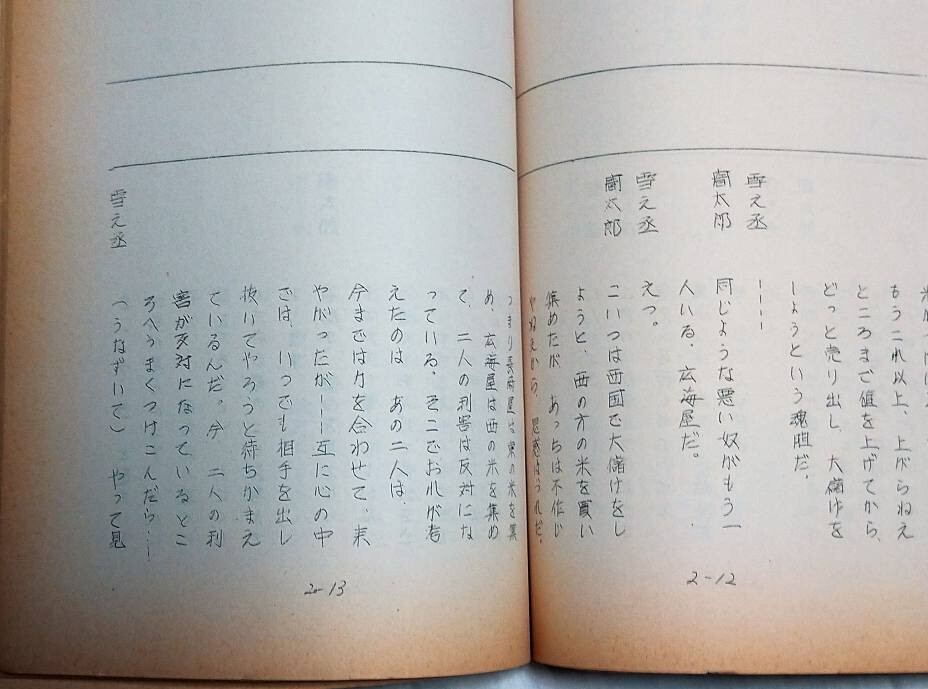 もうこれ以上、上がらねえ
ところまで値を上げてから、
どっと売り出し、大儲けを
しようという魂胆だ。
雪之丞 ――
闇太郎 同じような悪い奴がもう一
人いる。広海屋だ。
雪之丞 えっ。
闇太郎 こいつは西国で大儲けをし
ようと、西の方の米を買い
集めたが、あっちは不作じ
やねえから、思惑はうれだ。
2-12
つまり長崎屋は東の米を集
め、広海屋は西の米を集め
て、二人の利害は反対にな
っている。そこでおれが考
えたのは あの二人は、
今までは力を合わせて、来
やがったが――互に心の中
では、いつでも相手を出し
抜いてやろうと待ちかまえ
ているんだ。今 二人の利
害が反対になっているとこ
ろへうまくつけこんだら…
雪之丞 (うなずいて) やって見
2-13